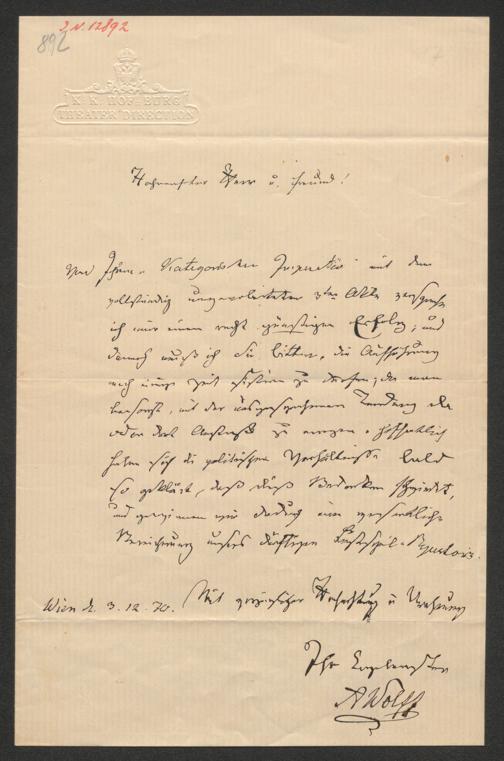 J.N. 12892
892
K. K. HOF-BURG
THEATER DIRECTION
Hochverehrter Herr u. Freund!
Von Ihrem "Kategorischen Imperativ" mit dem
vollständig umgearbeiteten 3ten Akte verspreche
ich mir einen recht günstigen Erfolg; und
dennoch muß ich Sie bitten, die Aufführung
noch einige Zeit sistiren zu dürfen; da man
besorgt, mit der ausgesprochenen Tendenz da
oder dort Anstoß zu erregen. Hoffentlich
haben sich die politischen Verhältnisse bald
so geklärt, daß dieß Bedenken schwindet,
und gewinnen wir dadurch eine wesentliche
Bereicherung unseres dürftigen Lustspiel-Repertoirs.
Wien d. 3.12.70. Mit vorzüglicher Hochachtung u Verehrung
Ihr Ergebenster
AWolff